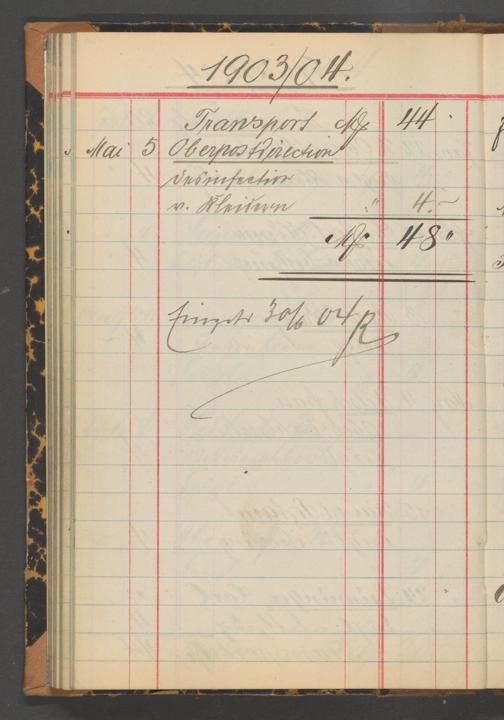 1903/04.
Transport M 44 "
" Mai 5 Oberpostdirection
Desinfection
v. Kleidern " 4.–
M 48 "
30/6 04 R